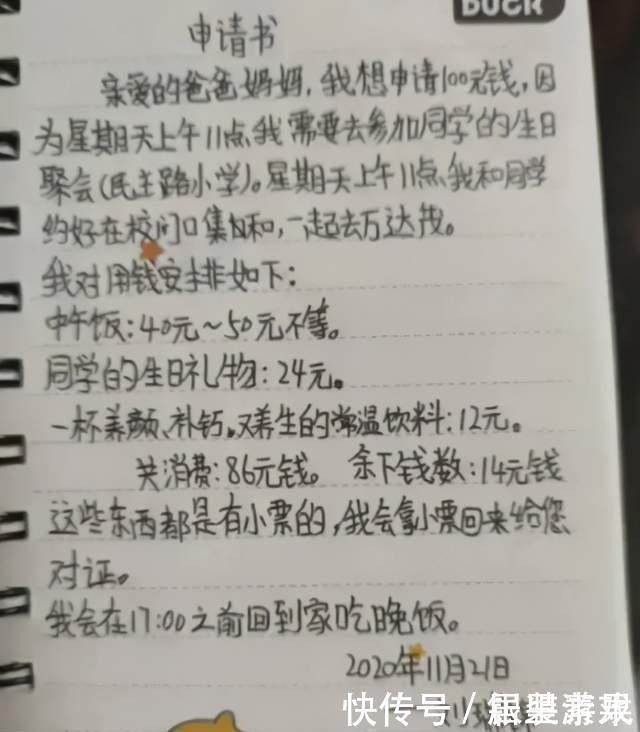 DUCK
申请书
亲爱的爸爸妈妈,我想申请100元钱,因
为星期天上午11点我需要去参加同学的生日
聚会(民主路小学)。星期天上午11点我和同学
约好在校门口集和,一起去万达找。
我对用钱安排如下:
中午饭:40元~50元不等。
同学的生日礼物:24元。
一杯养颜、补钙。又养生的常温饮料:12元。
共消费:86元钱。 余下钱数:14元钱
这些东西都是有小票的,我会拿小票回来给您
对证。
我会在17:00之前回到家吃晚饭。
2020年11月21日
快传号/